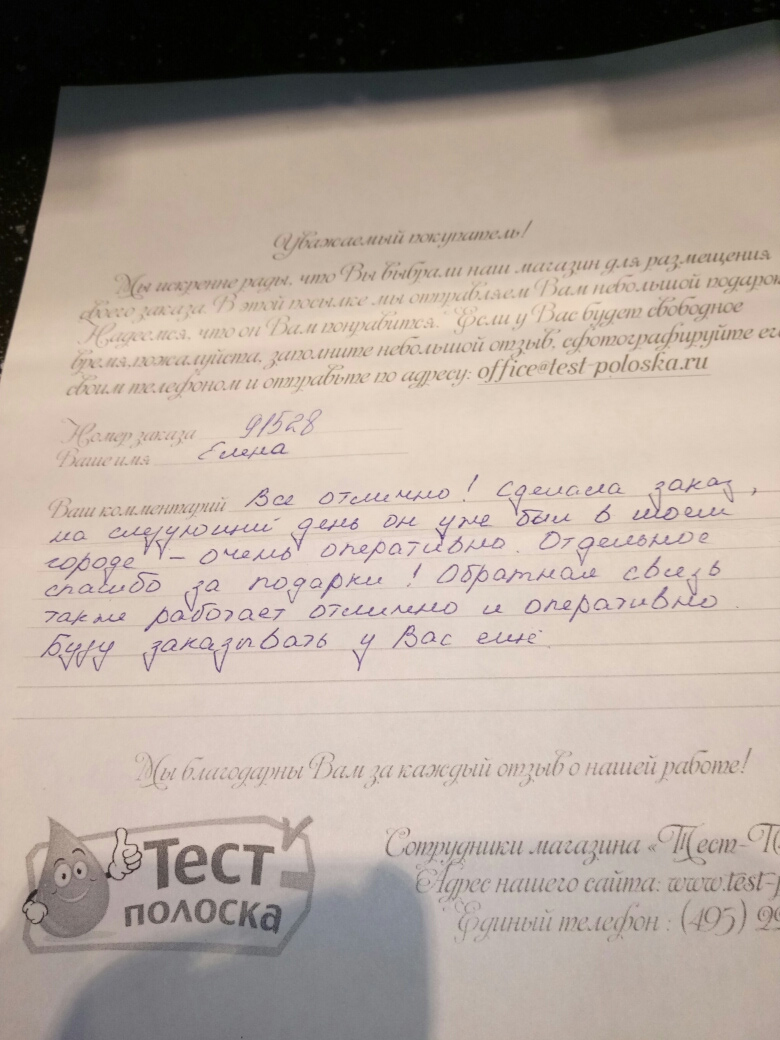 Уважаемый покупатель!
Мы искренне рады, что Вы выбрали наш магазин для размещения
своего заказа. В этой посылке мы отправляем Вам небольшой подарок
Надеемся, что он Вам понравится. Если у Вас будет свободное
время,пожалуйста, заполните небольшой отзыв, сфотографируйте его
своим телефоном и отправьте по адресу: office@test-poloska.ru
Номер заказа 91528
Ваше имя Елена
Ваш комментарий Все отлично! Сделала заказ,
на следующий день он уже был в моем
городе – очень оперативно. Отдельное
спасибо за подарки! Обратная связь
также работает отлично и оперативно.
Буду заказывать у Вас еще.
Мы благодарны Вам за каждый отзыв о нашей работе!
Тест
полоска
Сотрудники магазина «Тест-П
Адрес нашего сайта: www.test-p
Единый телефон : (495) 22